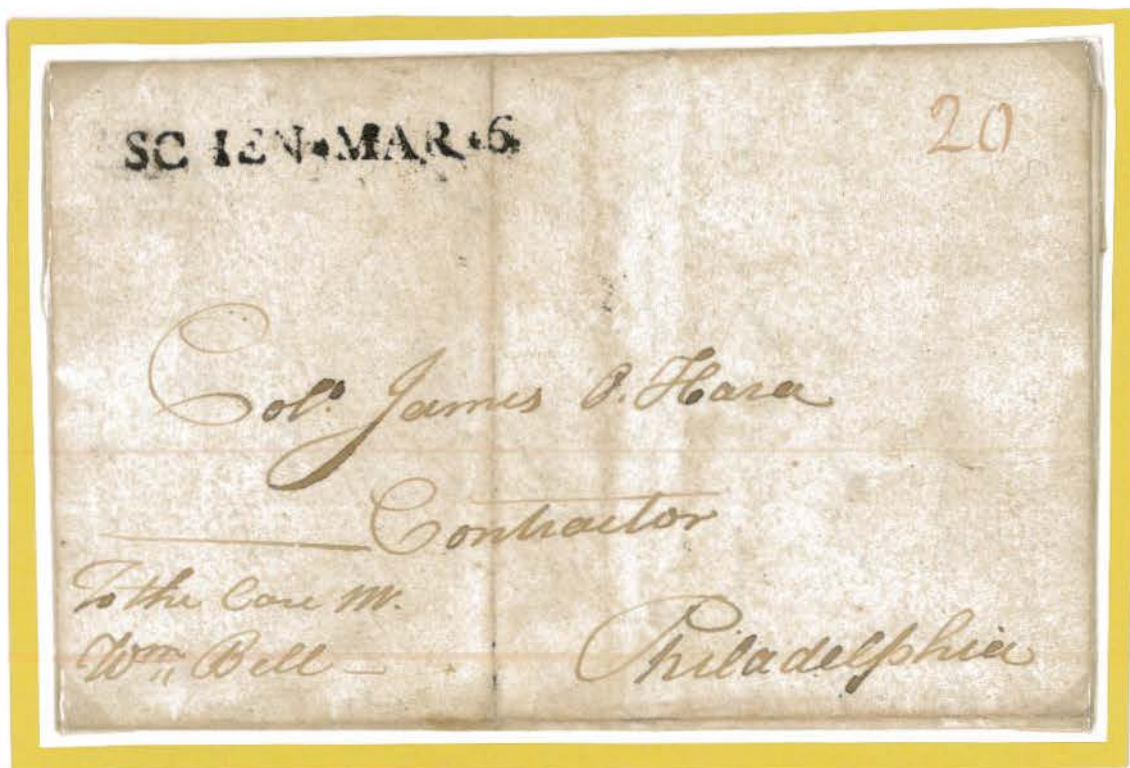 SCHEN·MAR·6
20
Colo. James O. Hara
Contractor
To the Care Mr.
Wm,, Bell —
Philadelphia